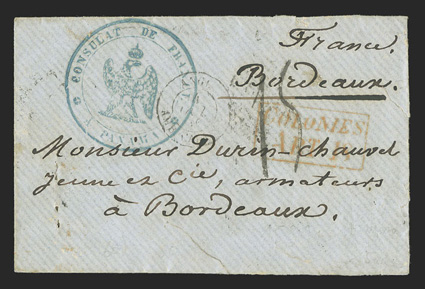 CONSULAT DE FRANCE
PANAMA
France.
Bordeaux.
15
COLONIES
ART.
Monsieur Durin-Chauvel
Jeune et Cie, armateurs
à Bordeaux.